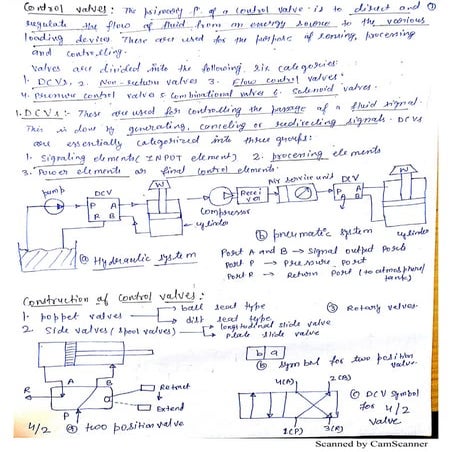 Control valves: The primary P. of a control valve is to direct and
regulate the flow of fluid from an energy source to the various
loading devices. These are used for the purpose of sensing, processing
and controlling.
Valves are divided into the following six categories:
1. DCVs, 2. Non-return valves 3. Flow control valves
4. Pressure control valves 5. Combinational valves 6. Solenoid valves.
1. DCVs :- These are used for controlling the passage of a fluid signal.
This is done by generating, canceling or redirecting signals. DCVs
are essentially categorized into three groups:
1. Signaling elements (INPUT element) 2. processing elements
3. Power elements or final control elements.
pump DCV W
P A
R B
cylinder
Compressor
Recei
ver
Air service unit DCV W
P B
A
cylinder
(a) Hydraulic system
(b) pneumatic system
Port A and B → Signal output Ports
Port P → Pressure port
Port R → Return Port (to atmosphere/
tank)
Construction of control valves:
1. poppet valves
ball seat type
disk seat type
(3) Rotary valves
2. Slide valves (Spool valves)
longitudinal slide valve
plate slide valve
b a
(b) symbol for two position
valve
R A B
Retract
Extend
P
4/2 (a) two position valve
4(A) 2(B)
1(P) 3(R)
(c) DCV symbol
for 4/2
valve
Scanned by CamScanner